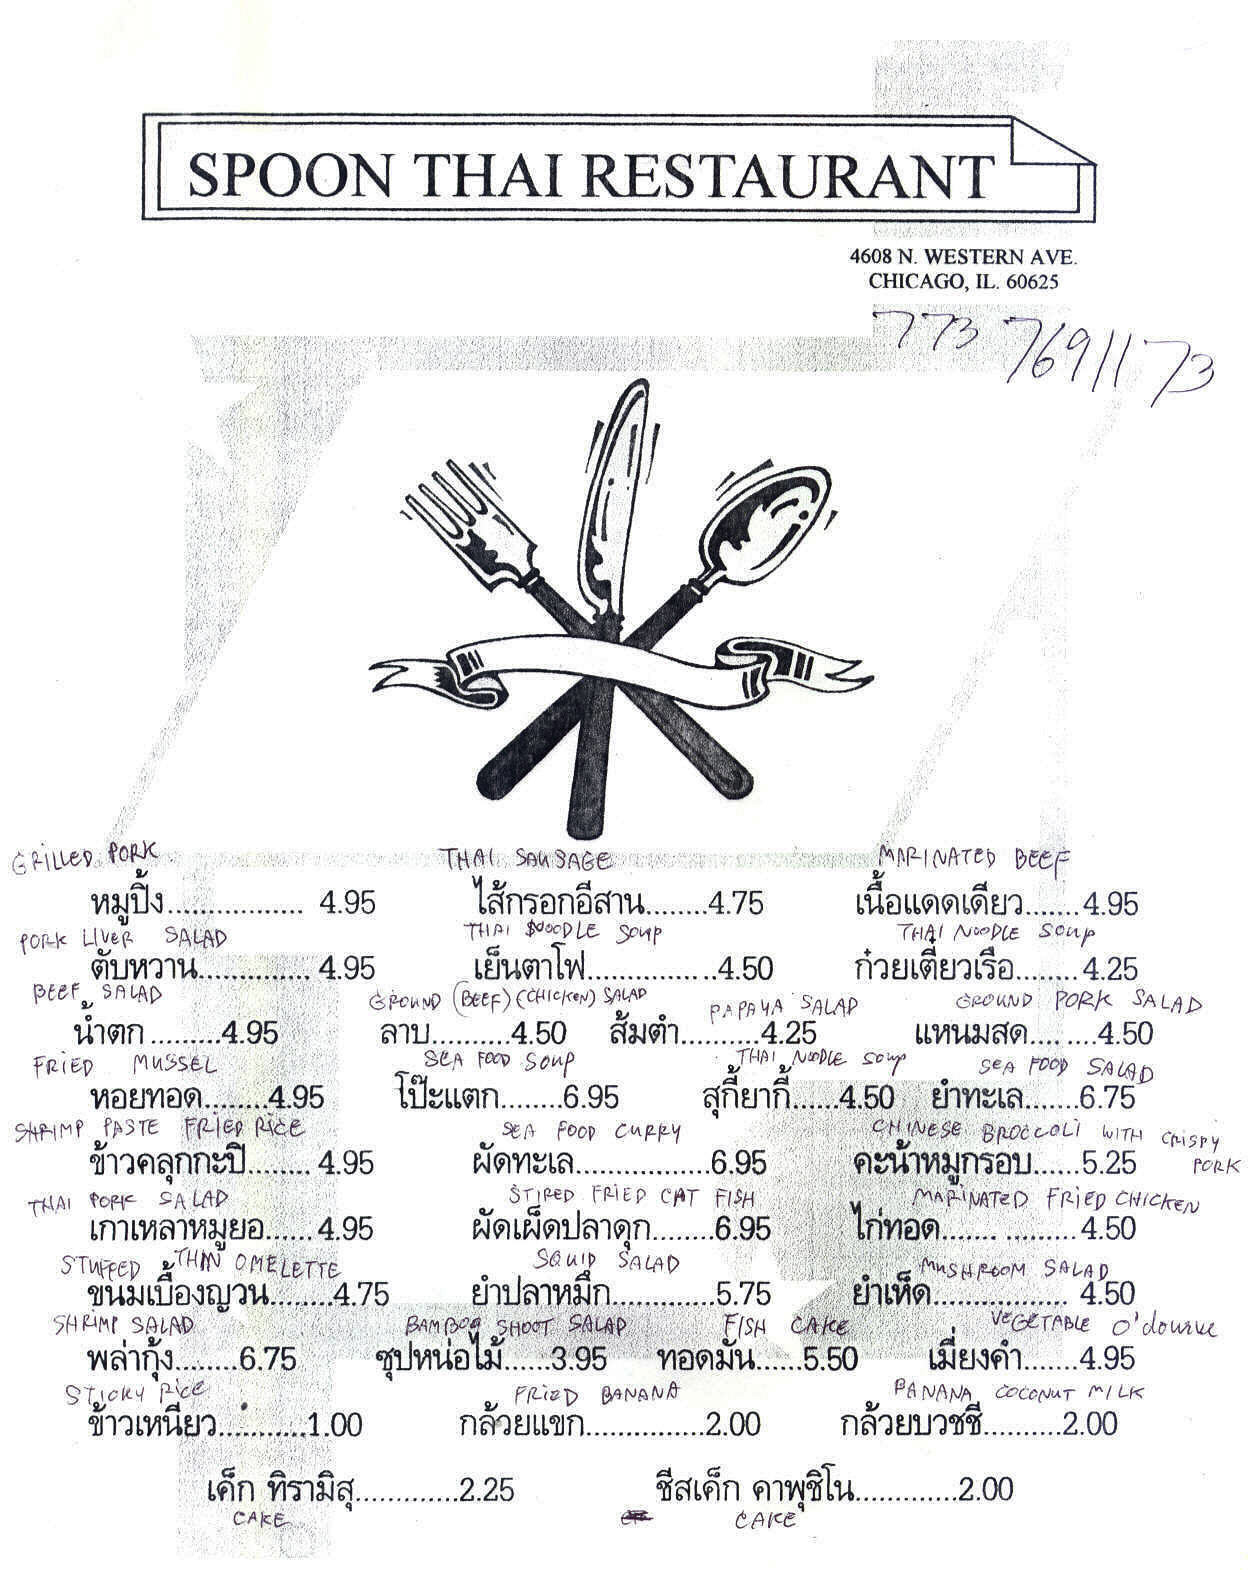 SPOON THAI RESTAURANT
4608 N. WESTERN AVE.
CHICAGO, IL. 60625
773 7691173
GRILLED PORK THAI SAUSAGE MARINATED BEEF
หมูปิ้ง................ 4.95 ไส้กรอกอีสาน........4.75 เนื้อแดดเดียว.......4.95
PORK LIVER SALAD THAI NOODLE SOUP THAI NOODLE SOUP
ตับหวาน............. 4.95 เย็นตาโฟ................4.50 ก๋วยเตี๋ยวเรือ........4.25
BEEF SALAD GROUND (BEEF)(CHICKEN) SALAD PAPAYA SALAD GROUND PORK SALAD
น้ำตก.........4.95 ลาบ..........4.50 ส้มตำ..........4.25 แหนมสด.... ....4.50
FRIED MUSSEL SEA FOOD SOUP THAI NOODLE SOUP SEA FOOD SALAD
หอยทอด........4.95 โป๊ะแตก........6.95 สุกี้ยากี้......4.50 ยำทะเล.......6.75
SHRIMP PASTE FRIED RICE SEA FOOD CURRY CHINESE BROCCOLI WITH CRISPY PORK
ข้าวคลุกกะปี........ 4.95 ผัดทะเล.................6.95 คะน้าหมูกรอบ......5.25
THAI PORK SALAD STIRED FRIED CAT FISH MARINATED FRIED CHICKEN
เกาเหลาหมูยอ...... 4.95 ผัดเผ็ดปลาดุก...........6.95 ไก่ทอด....... .........4.50
STUFFED THIN OMELETTE SQUID SALAD MUSHROOM SALAD
ขนมเบื้องญวน........4.75 ยำปลาหมึก.............5.75 ยำเห็ด................. 4.50
SHRIMP SALAD BAMBOO SHOOT SALAD FISH CAKE VEGETABLE O'dourve
พล่ากุ้ง........6.75 ซุปหน่อไม้......3.95 ทอดมัน......5.50 เมี่ยงคำ.......4.95
STICKY RICE FRIED BANANA BANANA COCONUT MILK
ข้าวเหนียว...........1.00 กล้วยแขก...............2.00 กล้วยบวชชี..........2.00
เค็ก ทิรามิสุ.............2.25 ชีสเค็ก คาพุชิโน.............2.00
CAKE CAKE